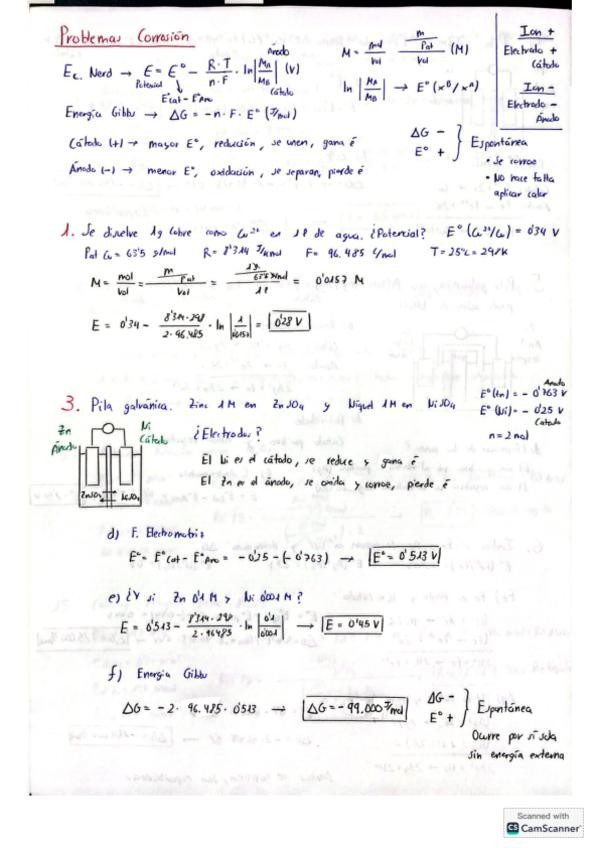 Problemas Corrosión
Ec. Nerd → E = E° − R·T / n·F · ln |MA / MB| (V)
Ánodo
Cátodo
Potencial
E°cat − E°Ano
M = mol / Vol = m / Pat / Vol (M)
ln |MA / MB| → E° (x^B / x^A)
Ion +
Electrodo +
Cátodo
Ion −
Electrodo −
Ánodo
Energía Gibbs → ΔG = −n·F·E° (J/mol)
Cátodo (+) → mayor E°, reducción, se unen, gana ē
Ánodo (−) → menor E°, oxidación, se separan, pierde ē
ΔG −
E° +
} Espontánea
• Se corroe
• No hace falta
aplicar calor
1. Se disuelve 1g cobre como Cu²⁺ en 1 l de agua. ¿Potencial? E° (Cu²⁺/Cu) = 0'34 V
Pat Cu = 63'5 g/mol R = 8'314 J/kmol F = 96.485 C/mol T = 25°C = 298K
M = mol / Vol = m / Pat / Vol = 1g / 63'5 g/mol / 1 l = 0'0157 M
E = 0'34 − 8'314·298 / 2·96.485 · ln |1 / 0'0157| = 0'28 V
3. Pila galvánica. Zinc 1M en ZnSO4 y Níquel 1M en NiSO4
Ánodo
E° (Zn) = − 0'763 V
E° (Ni) = − 0'25 V
Cátodo
n = 2 mol
Zn
Ánodo
Ni
Cátodo
ZnSO4
NiSO4
¿Electrodos?
El Ni es el cátodo, se reduce y gana ē
El Zn es el ánodo, se oxida y corroe, pierde ē
d) F. Electromotriz
E° = E°Cat − E°Ano = − 0'25 − (− 0'763) → E° = 0'513 V
e) ¿V si Zn 0'1 M y Ni 0'001 M?
E = 0'513 − 8'314·298 / 2·96485 · ln |0'1 / 0'001| → E = 0'45 V
f) Energía Gibbs
ΔG = − 2 · 96.485 · 0'513 → ΔG = − 99.000 J/mol
ΔG −
E° +
} Espontánea
Ocurre por sí sola
sin energía externa
Scanned with
CS CamScanner